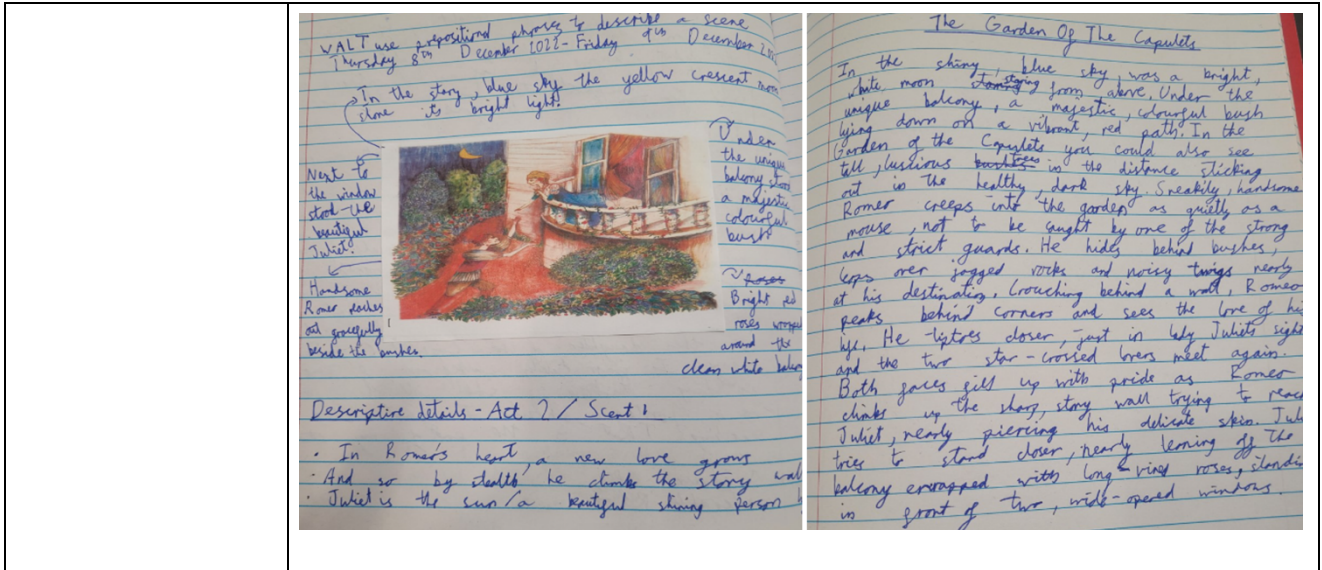 WALT use prepositional phrases to describe a scene
Thursday 8th December 2022 - Friday 9th December
In the story, blue sky the yellow crescent moon
shone its bright light!
Next to
the window
stood the
beautiful
Juliet!
Handsome
Romeo
out gracefully
beside the bushes.
Under
the unique
balcony, stood
a majestic
colourful
bush
Roses
Bright red
roses wrapped
around the
clean white balcony
Descriptive details - Act 2 / Scent 1
· In Romeo's heart, a new love grows
· And so by stealth he climbs the stony wall
· Juliet is the sun/a beautiful shining person
The Garden Of The Capulets
In the shiny, blue sky, was a bright,
white moon staring from above. Under the
unique balcony, a majestic, colourful bush
lying down on a vibrant, red path. In the
Garden of the Capulets you could also see
tall, luscious trees in the distance sticking
out in the healthy, dark sky. Sneakily, handsome
Romeo creeps into the garden as quietly as a
mouse, not to be caught by one of the strong
and strict guards. He hides behind bushes,
leps over jagged rocks and noisy twigs nearly
at his destination. Crouching behind a wall, Romeo
peaks behind corners and sees the love of his
life. He tiptoes closer, just in lady Juliets sight
and the two star-crossed lovers meet again.
Both faces fill up with pride as Romeo
climbs up the sharp, stony wall trying to reach
Juliet, nearly piercing his delicate skin. Juliet
tries to stand closer, nearly leaning off the
balcony enwrapped with long-vined roses, standing
in front of two, wide-opened windows.